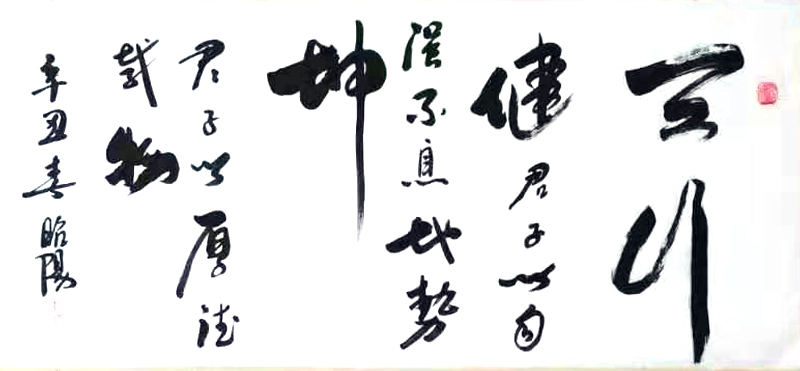 天行
健君子以自
强不息地勢
坤
君子以厚德
載物
辛丑春 昭陽